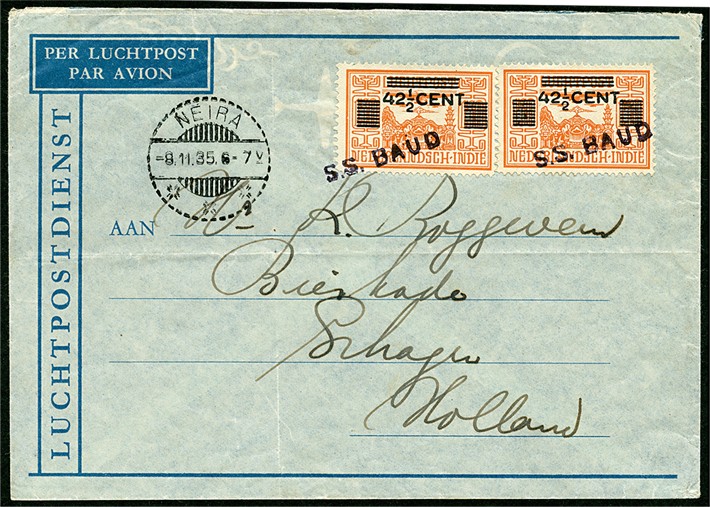 PER LUCHTPOST
PAR AVION
LUCHTPOSTDIENST
NEIRA
-9.11.35. 6-7V
42½ CENT
NED. INDSCH-INDIE
S.S. BAUD
42½ CENT
NED. INDSCH-INDIE
S.S. BAUD
AAN K. Roggeveen
Bierkade
Schagen
Holland